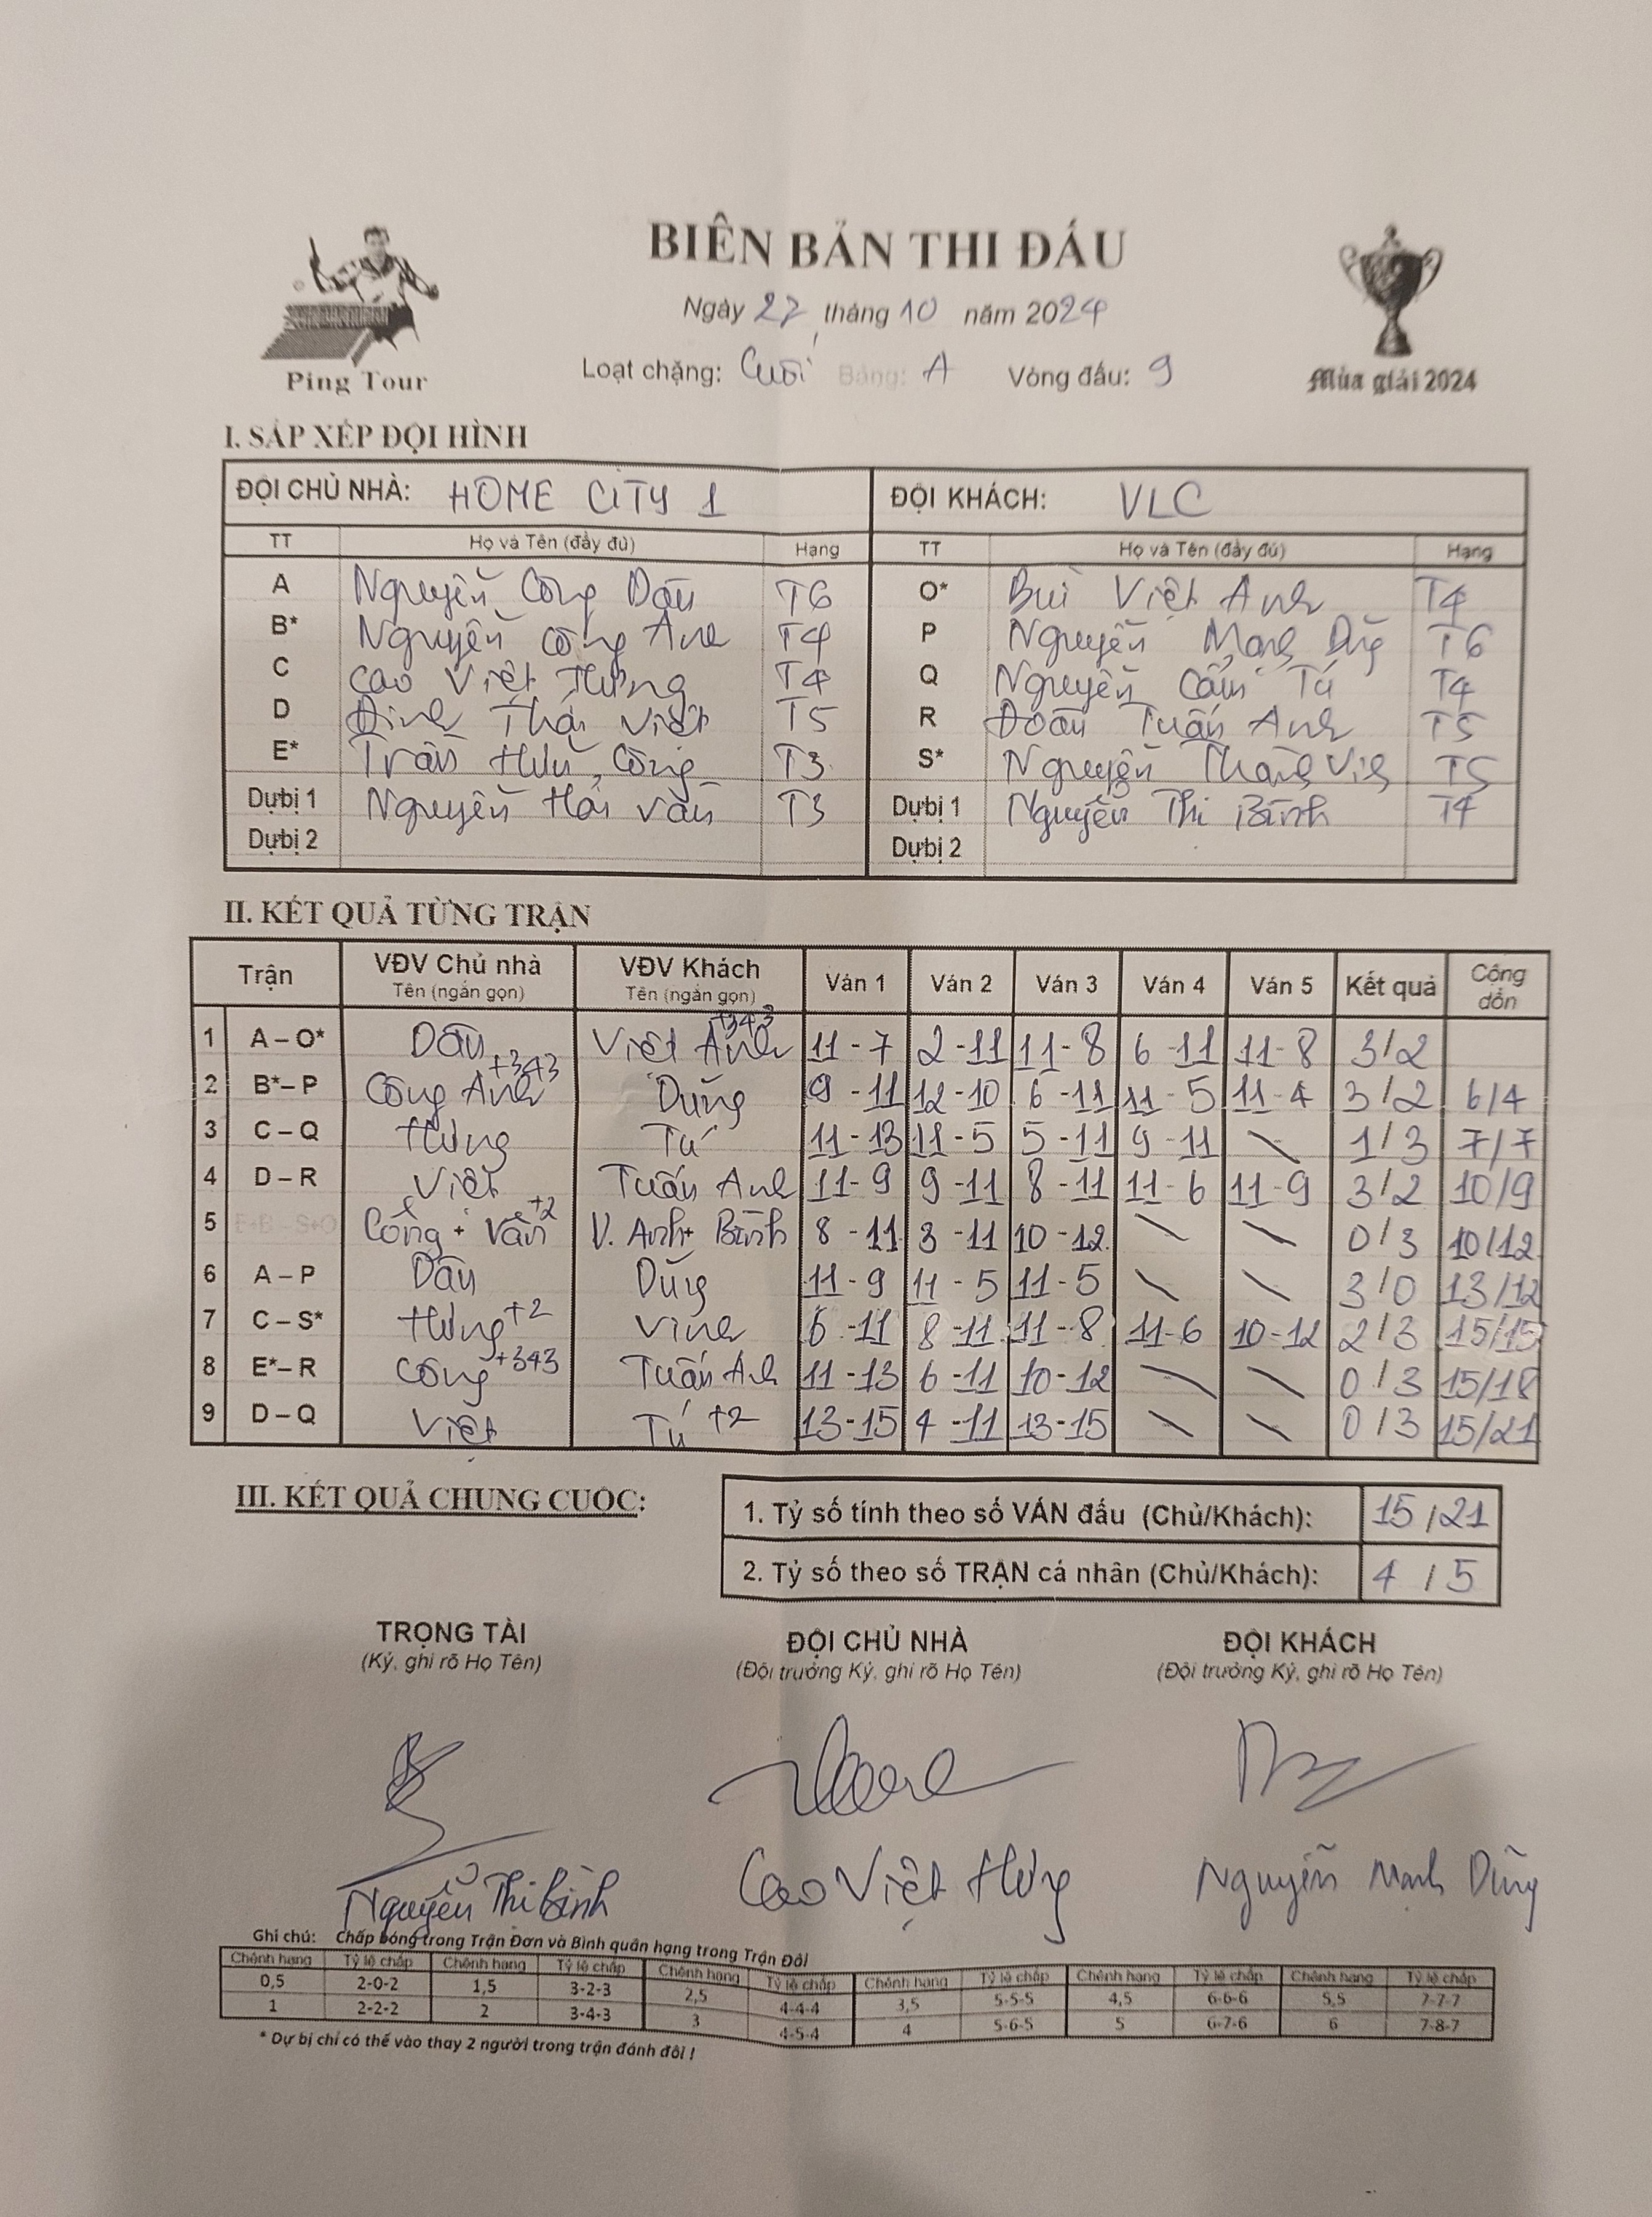 BIÊN BẢN THI ĐẤU
Ngày 27 tháng 10 năm 2024
Loạt chặng: Cuối Bảng: A Vòng đấu: 9
Ping Tour
Mùa giải 2024
I. SẮP XẾP ĐỘI HÌNH
ĐỘI CHỦ NHÀ: HOME CITY 1 ĐỘI KHÁCH: VLC
TT Họ và Tên (đầy đủ) Hạng TT Họ và Tên (đầy đủ) Hạng
A Nguyễn Công Dân T6 O* Bùi Việt Anh T4
B* Nguyễn Công Anh T4 P Nguyễn Mạnh Dũng T6
C Cao Việt Hưng T4 Q Nguyễn Cẩm Tú T4
D Đinh Thái Việt T5 R Đoàn Tuấn Anh T5
E* Trần Hữu Công T3 S* Nguyễn Thành Vinh T5
Dự bị 1 Nguyễn Hải Vân T3 Dự bị 1 Nguyễn Thị Bình T4
Dự bị 2 Dự bị 2
II. KẾT QUẢ TỪNG TRẬN
Trận VĐV Chủ nhà VĐV Khách Ván 1 Ván 2 Ván 3 Ván 4 Ván 5 Kết quả Cộng dồn
Tên (ngắn gọn) Tên (ngắn gọn)
1 A – O* Dân Việt Anh +343 11-7 2-11 11-8 6-11 11-8 3/2
2 B* – P Công Anh +343 Dũng 9-11 12-10 6-11 11-5 11-4 3/2 6/4
3 C – Q Hưng Tú 11-13 11-5 5-11 9-11 \ 1/3 7/7
4 D – R Việt Tuấn Anh 11-9 9-11 8-11 11-6 11-9 3/2 10/9
5 E+B – S+O Công + Vân +2 V. Anh + Bình 8-11 3-11 10-12 \ \ 0/3 10/12
6 A – P Dân Dũng 11-9 11-5 11-5 \ \ 3/0 13/12
7 C – S* Hưng +2 Vinh 6-11 8-11 11-8 11-6 10-12 2/3 15/15
8 E* – R Công +343 Tuấn Anh 11-13 6-11 10-12 \ \ 0/3 15/18
9 D – Q Việt Tú +2 13-15 4-11 13-15 \ \ 0/3 15/21
III. KẾT QUẢ CHUNG CUỘC:
1. Tỷ số tính theo số VÁN đấu (Chủ/Khách): 15/21
2. Tỷ số theo số TRẬN cá nhân (Chủ/Khách): 4/5
TRỌNG TÀI ĐỘI CHỦ NHÀ ĐỘI KHÁCH
(Ký, ghi rõ Họ Tên) (Đội trưởng Ký, ghi rõ Họ Tên) (Đội trưởng Ký, ghi rõ Họ Tên)
Nguyễn Thị Bình Cao Việt Hưng Nguyễn Mạnh Dũng
Ghi chú: Chấp bóng trong Trận Đơn và Bình quân hạng trong Trận Đôi
Chênh hạng Tỷ lệ chấp Chênh hạng Tỷ lệ chấp Chênh hạng Tỷ lệ chấp Chênh hạng Tỷ lệ chấp Chênh hạng Tỷ lệ chấp Chênh hạng Tỷ lệ chấp
0,5 2-0-2 1,5 3-2-3 2,5 4-4-4 3,5 5-5-5 4,5 6-6-6 5,5 7-7-7
1 2-2-2 2 3-4-3 3 4-5-4 4 5-6-5 5 6-7-6 6 7-8-7
* Dự bị chỉ có thể vào thay 2 người trong trận đánh đôi !